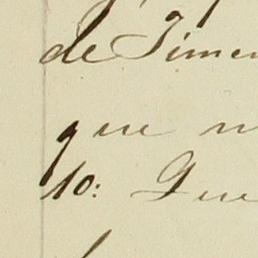 de Timen
que n
10: Que